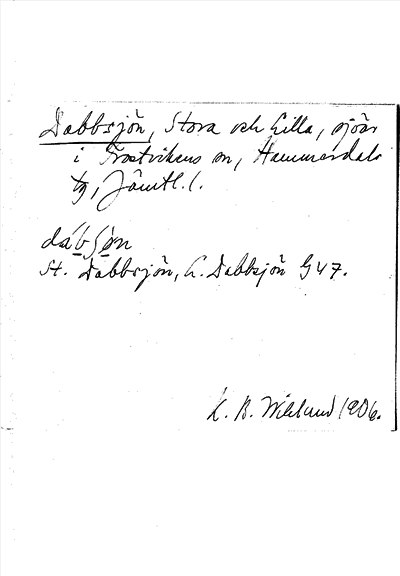 Dabbsjön, Stora och Lilla, sjöar
i Frostvikens sn, Hammerdals
tg, Jämtl. l.
dábʃøn
St. Dabbsjön, L. Dabbsjön G47.
K. B. Wiklund 1906.